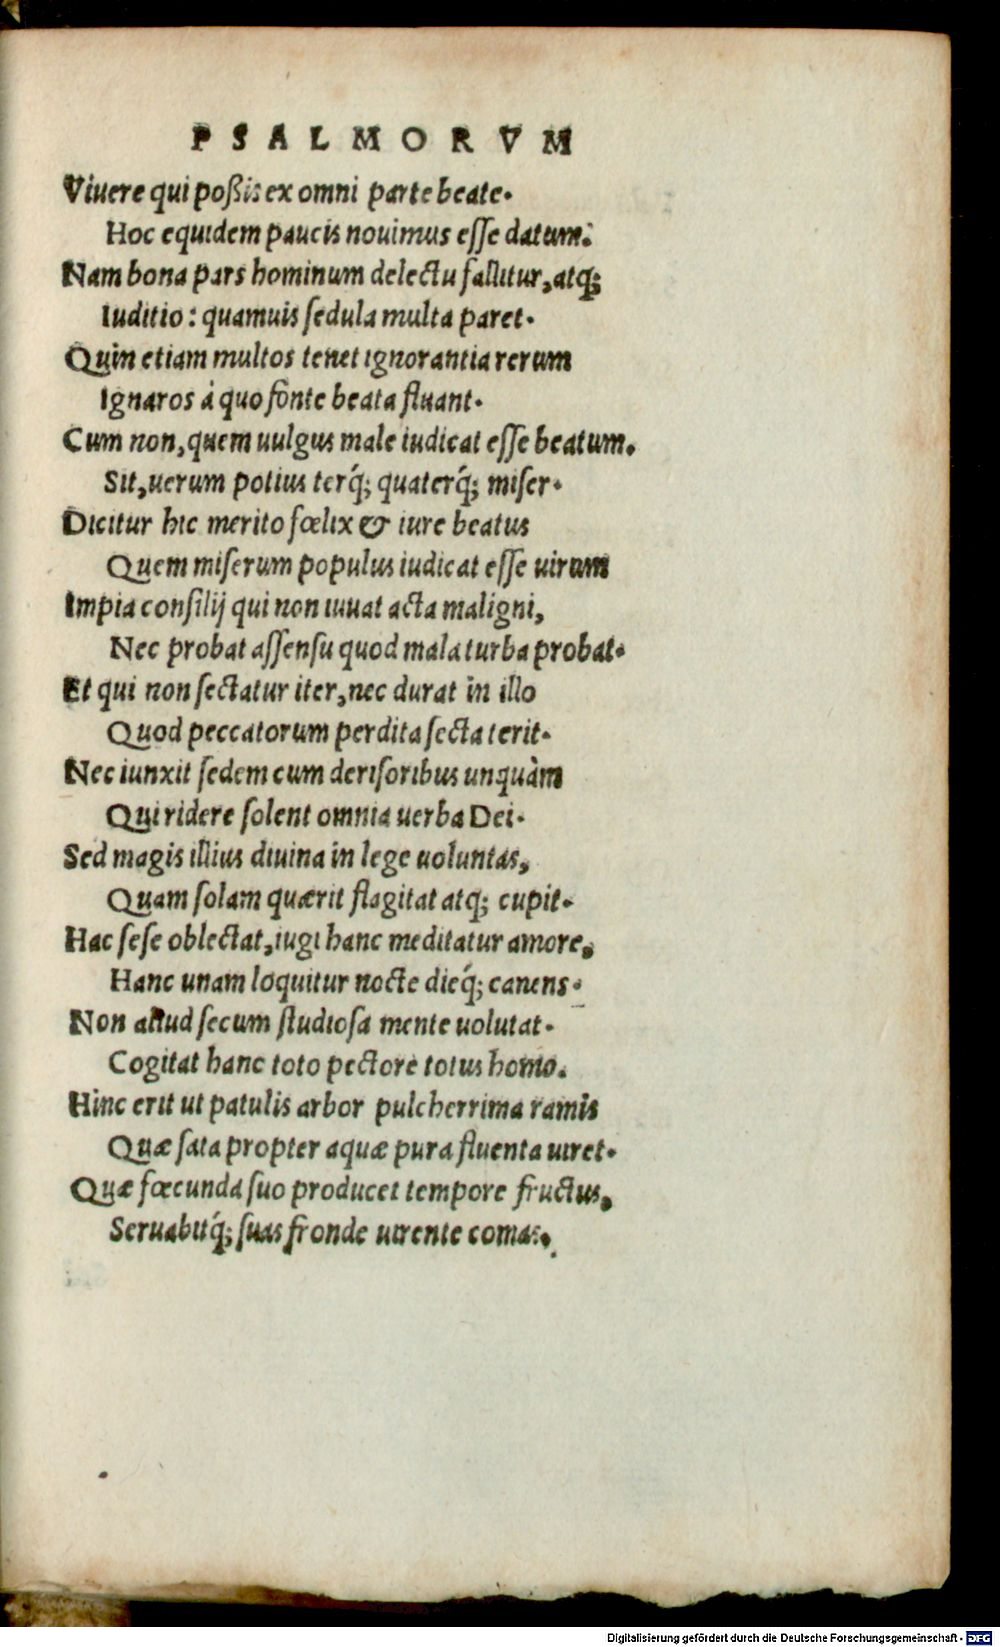 PSALMORVM
Viuere qui poßis ex omni parte beate.
Hoc equidem paucis nouimus esse datum.
Nam bona pars hominum delectu fallitur, atq;
Iuditio: quamuis sedula multa paret.
Quin etiam multos tenet ignorantia rerum
Ignaros à quo fonte beata fluant.
Cum non, quem uulgus male iudicat esse beatum.
Sit, uerum potius terq́; quaterq́; miser.
Dicitur hic merito fœlix & iure beatus
Quem miserum populus iudicat esse uirum
Impia consilij qui non iuuat acta maligni,
Nec probat assensu quod mala turba probat.
Et qui non sectatur iter, nec durat in illo
Quod peccatorum perdita secta terit.
Nec iunxit sedem cum derisoribus unquàm
Qui ridere solent omnia uerba Dei.
Sed magis illius diuina in lege uoluntas,
Quam solam quærit flagitat atq; cupit.
Hac sese oblectat, iugi hanc meditatur amore,
Hanc unam loquitur nocte dieq́; canens.
Non aliud secum studiosa mente uolutat.
Cogitat hanc toto pectore totus homo.
Hinc erit ut patulis arbor pulcherrima ramis
Quæ sata propter aquæ pura fluenta uiret.
Quæ fœcunda suo producet tempore fructus,
Seruabitq́; suas fronde uirente comas.
Digitalisierung gefördert durch die Deutsche Forschungsgemeinschaft - DFG